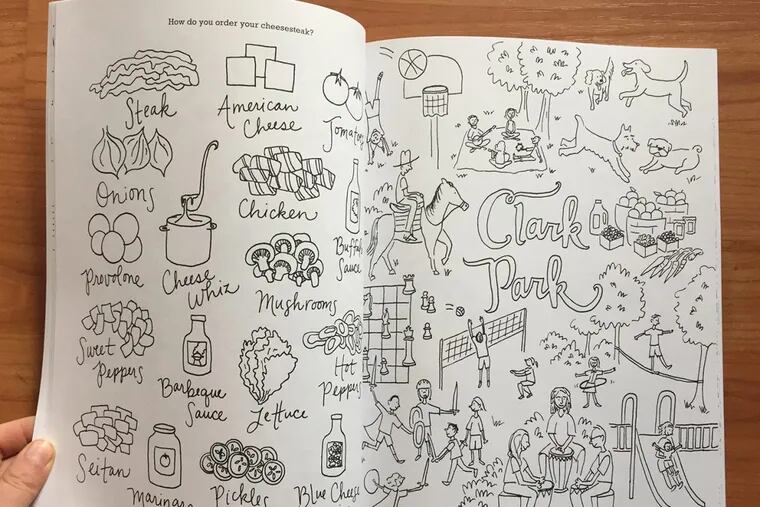 How do you order your cheesesteak?
Steak
American
Cheese
Tomatoes
Onions
Chicken
Provolone
Cheese
Whiz
Mushrooms
Buffalo
Sauce
Sweet
Peppers
Barbeque
Sauce
Lettuce
Hot
Peppers
Seitan
Marinara
Pickles
Blue Cheese
Clark
Park